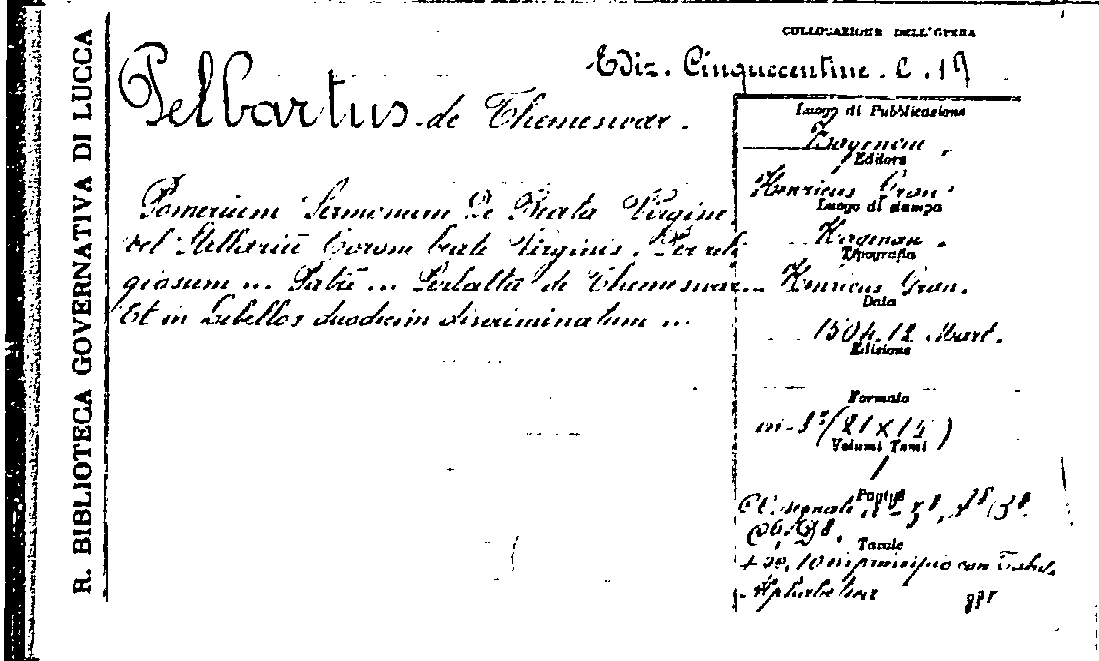 R. BIBLIOTECA GOVERNATIVA DI LUCCA
COLLOCAZIONE DELL'OPERA
Ediz. Cinquecentine. C. 19
Pelbartus de Themeswar.
Pomerium Sermonum De Beata Virgine
vel Stellariũ Corone beate Virginis. Per reli
giosum ... Patrẽ ... Pelbaltũ de Themeswar...
Et in Libellos duodecim discriminatum ...
Luogo di Pubblicazione
Hagenau.
Editore
Henricus Gran.
Luogo di stampa
Hagenau.
Tipografia
Henricus Gran.
Data
1504. 12 Mart.
Edizione
Formato
in-8° (21 x 15)
Volumi Tomi
1
Pagine
Cc. segnate
Tavole
10 in principio con